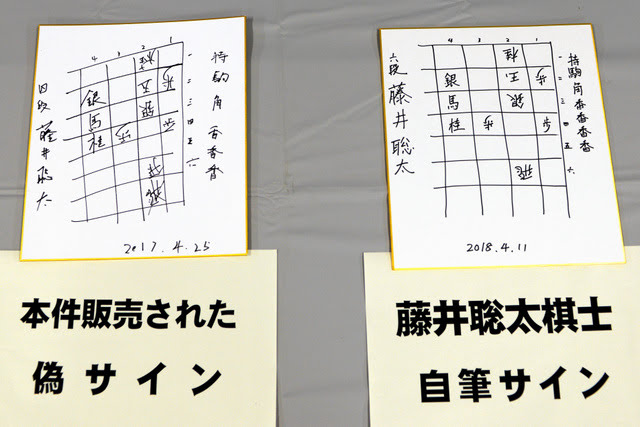 4 3 2 1
持駒 角 香香香
一
二
三
四
五
六
桂
玉 歩
銀 銀
馬
桂 歩
四段 藤井聡太
2017.4.25
本件販売された
偽サイン
4 3 2 1
持駒 角 香香香香
一
二
三
四
五
六
桂
銀 玉 歩
馬 銀
桂 歩 歩
飛
六段 藤井聡太
2018.4.11
藤井聡太棋士
自筆サイン